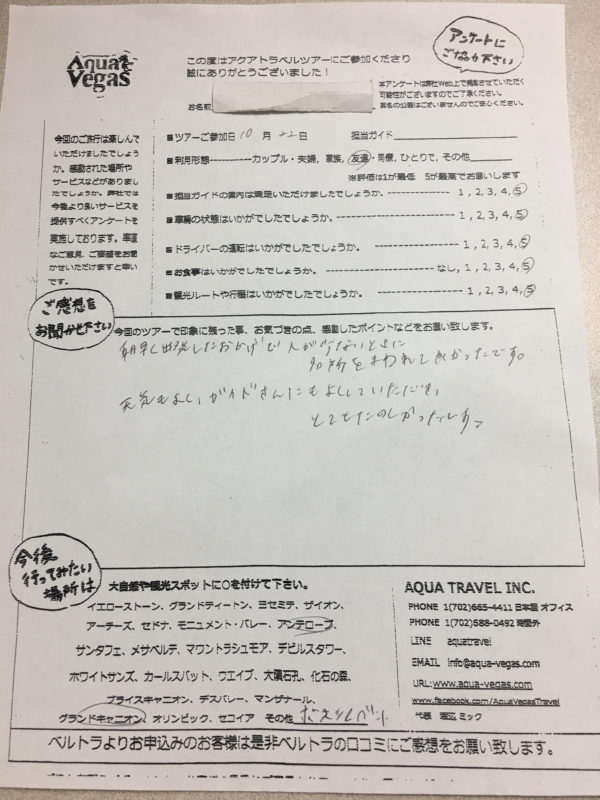 Aqua Vegas
この度はアクアトラベルツアーにご参加くださり
誠にありがとうございました！
アンケートに
ご協力下さい
本アンケートは弊社Web上で掲載させていただく
可能性がございますのでご了承ください。
実名の公表はございませんのでご安心ください。
お名前
今回のご旅行は楽しんで
いただけましたでしょう
か。感動された場所や
サービスなどがありまし
たでしょうか。弊社では
今後より良いサービスを
提供すべくアンケートを
実施しております。率直
なご意見、ご要望をお聞
かせいただけますと幸い
です。
■ツアーご参加日 10 月 22 日 担当ガイド
■利用形態-----------カップル・夫婦, 家族, 友達・同僚, ひとりで, その他
※評価は1が最低 5が最高でお願いします
■担当ガイドの案内は満足いただけましたでしょうか。----------- 1, 2, 3, 4, 5
■車輛の状態はいかがでしたでしょうか。------------------ 1, 2, 3, 4, 5
■ドライバーの運転はいかがでしたでしょうか。---------------- 1, 2, 3, 4, 5
■お食事はいかがでしたでしょうか。-----------------なし, 1, 2, 3, 4, 5
■観光ルートや行程はいかがでしたでしょうか。---------------- 1, 2, 3, 4, 5
ご感想を
お聞かせ下さい
今回のツアーで印象に残った事、お気づきの点、感動したポイントなどをお願い致します。
朝早く出発したおかげで人が少ないときに
名所をまわれてよかったです。
天気もよし、ガイドさんにもよくしていただき、
とてもたのしかったです。
今後
行ってみたい
場所は
大自然や観光スポットに○を付けて下さい。
イエローストーン、グランドティートン、ヨセミテ、ザイオン、
アーチーズ、セドナ、モニュメント・バレー、アンテロープ、
サンタフェ、メサベルデ、マウントラシュモア、デビルスタワー、
ホワイトサンズ、カールスバット、ウエイブ、大隕石孔、化石の森、
ブライスキャニオン、デスバレー、マンザナール、
グランドキャニオン、オリンピック、セコイア その他
AQUA TRAVEL INC.
PHONE 1(702)665-4411 日本語オフィス
PHONE 1(702)588-0492 時間外
LINE aquatravel
EMAIL info@aqua-vegas.com
URL:www.aqua-vegas.com
www.facebook.com/AquaVegasTravel
代表 渡辺 ミック
ベルトラよりお申込みのお客様は是非ベルトラの口コミにご感想をお願い致します。